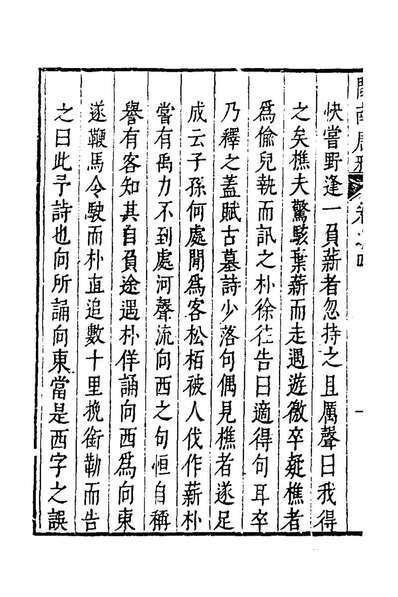 閩南唐雅 卷之四
快嘗野逢一負薪者忽持之且厲聲曰我得
之矣樵夫驚駭棄薪而走遇遊徼卒疑樵者
爲偷兒執而訊之朴徐往告曰適得句耳卒
乃釋之蓋賦古墓詩少落句偶見樵者遂足
成云子孫何處閒爲客松栢被人伐作薪朴
嘗有禹力不到處河聲流向西之句恒自稱
譽有客知其自負途遇朴佯誦向西爲向東
遂鞭馬令駛而朴直追數十里挽銜勒而告
之曰此予詩也向所誦向東當是西字之誤